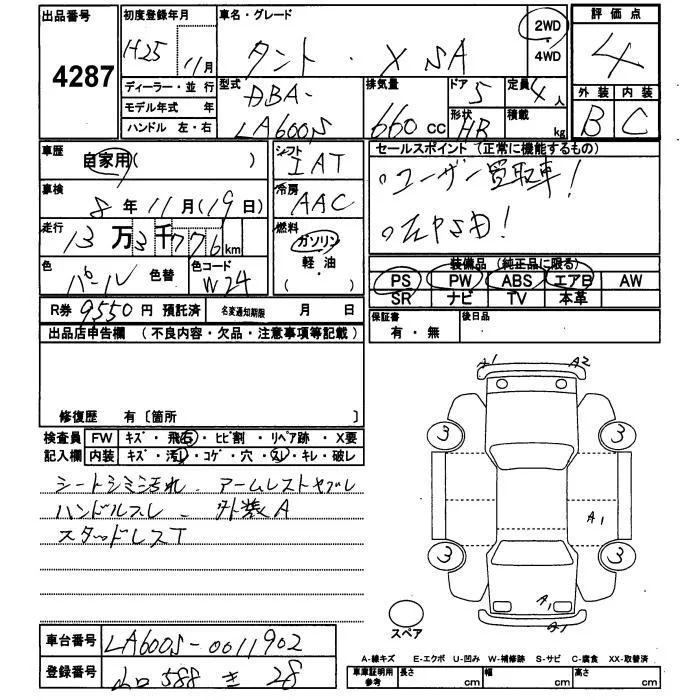 出品番号
4287
初度登録年月
H25 11月
ディーラー・並行
モデル年式 年
ハンドル 左・右
車名・グレード
タント・X SA
2WD
・
4WD
評価点
4
外装 内装
B C
型式
DBA-
LA600S
排気量
660 cc
ドア
5
形状
HB
定員
4人
積載
kg
車歴
自家用( )
車検
8年11月(19日)
走行
13万3千776km
色
パール
色替
色コード
W24
シフト
IAT
冷房
AAC
燃料
ガソリン
軽・油
( )
セールスポイント(正常に機能するもの)
○ユーザー買取車!
○左PSD!
装備品(純正品に限る)
PS PW ABS エアB AW
SR ナビ TV 本革
保証書
有・無
後日品
R券 9550円 預託済 名変通知期限 月 日
出品店申告欄(不良内容・欠品・注意事項等記載)
修復歴 有〔箇所 〕
検査員 FW キズ・飛石・ヒビ割・リペア跡・X要
記入欄 内装 キズ・汚れ・コゲ・穴・スレ・キレ・破レ
シートシミ汚れ アームレストヤブレ
ハンドルスレ 外装A
スタッドレスT
A1 A2
3 3
A1
3 3
A1
A1
スペア
車台番号 LA600S-0011902
登録番号 山口 588 き 28
A-線キズ E-エクボ U-凹み W-補修跡 S-サビ C-腐食 XX-取替済
車庫証明用
参考
長さ cm 幅 cm 高さ cm